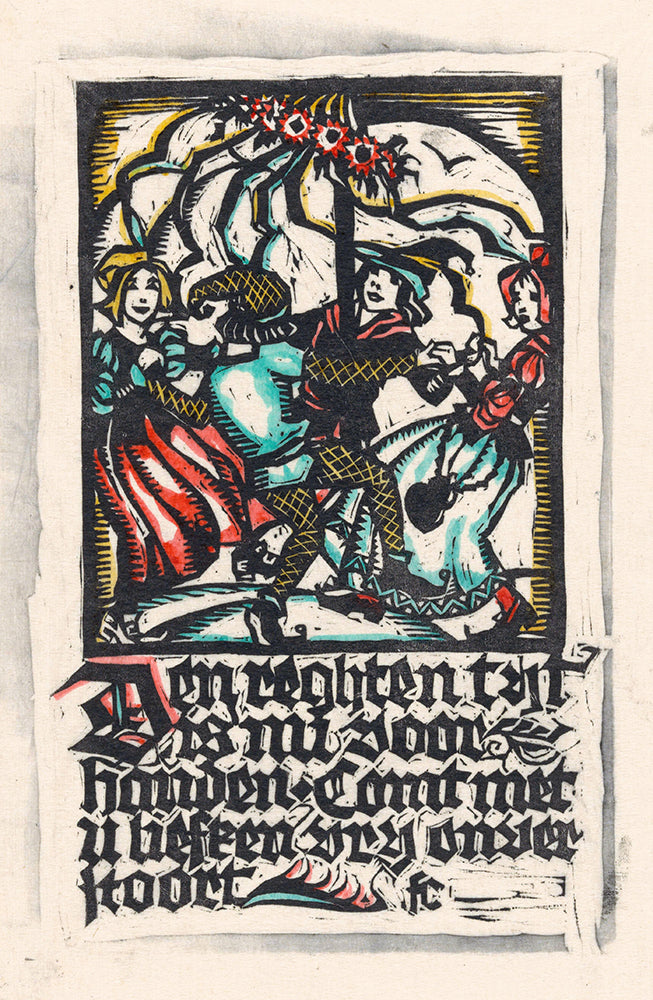 Den reghten tyt
is nu voor
handen. Comt met
u liefken vry onver
stoort fc